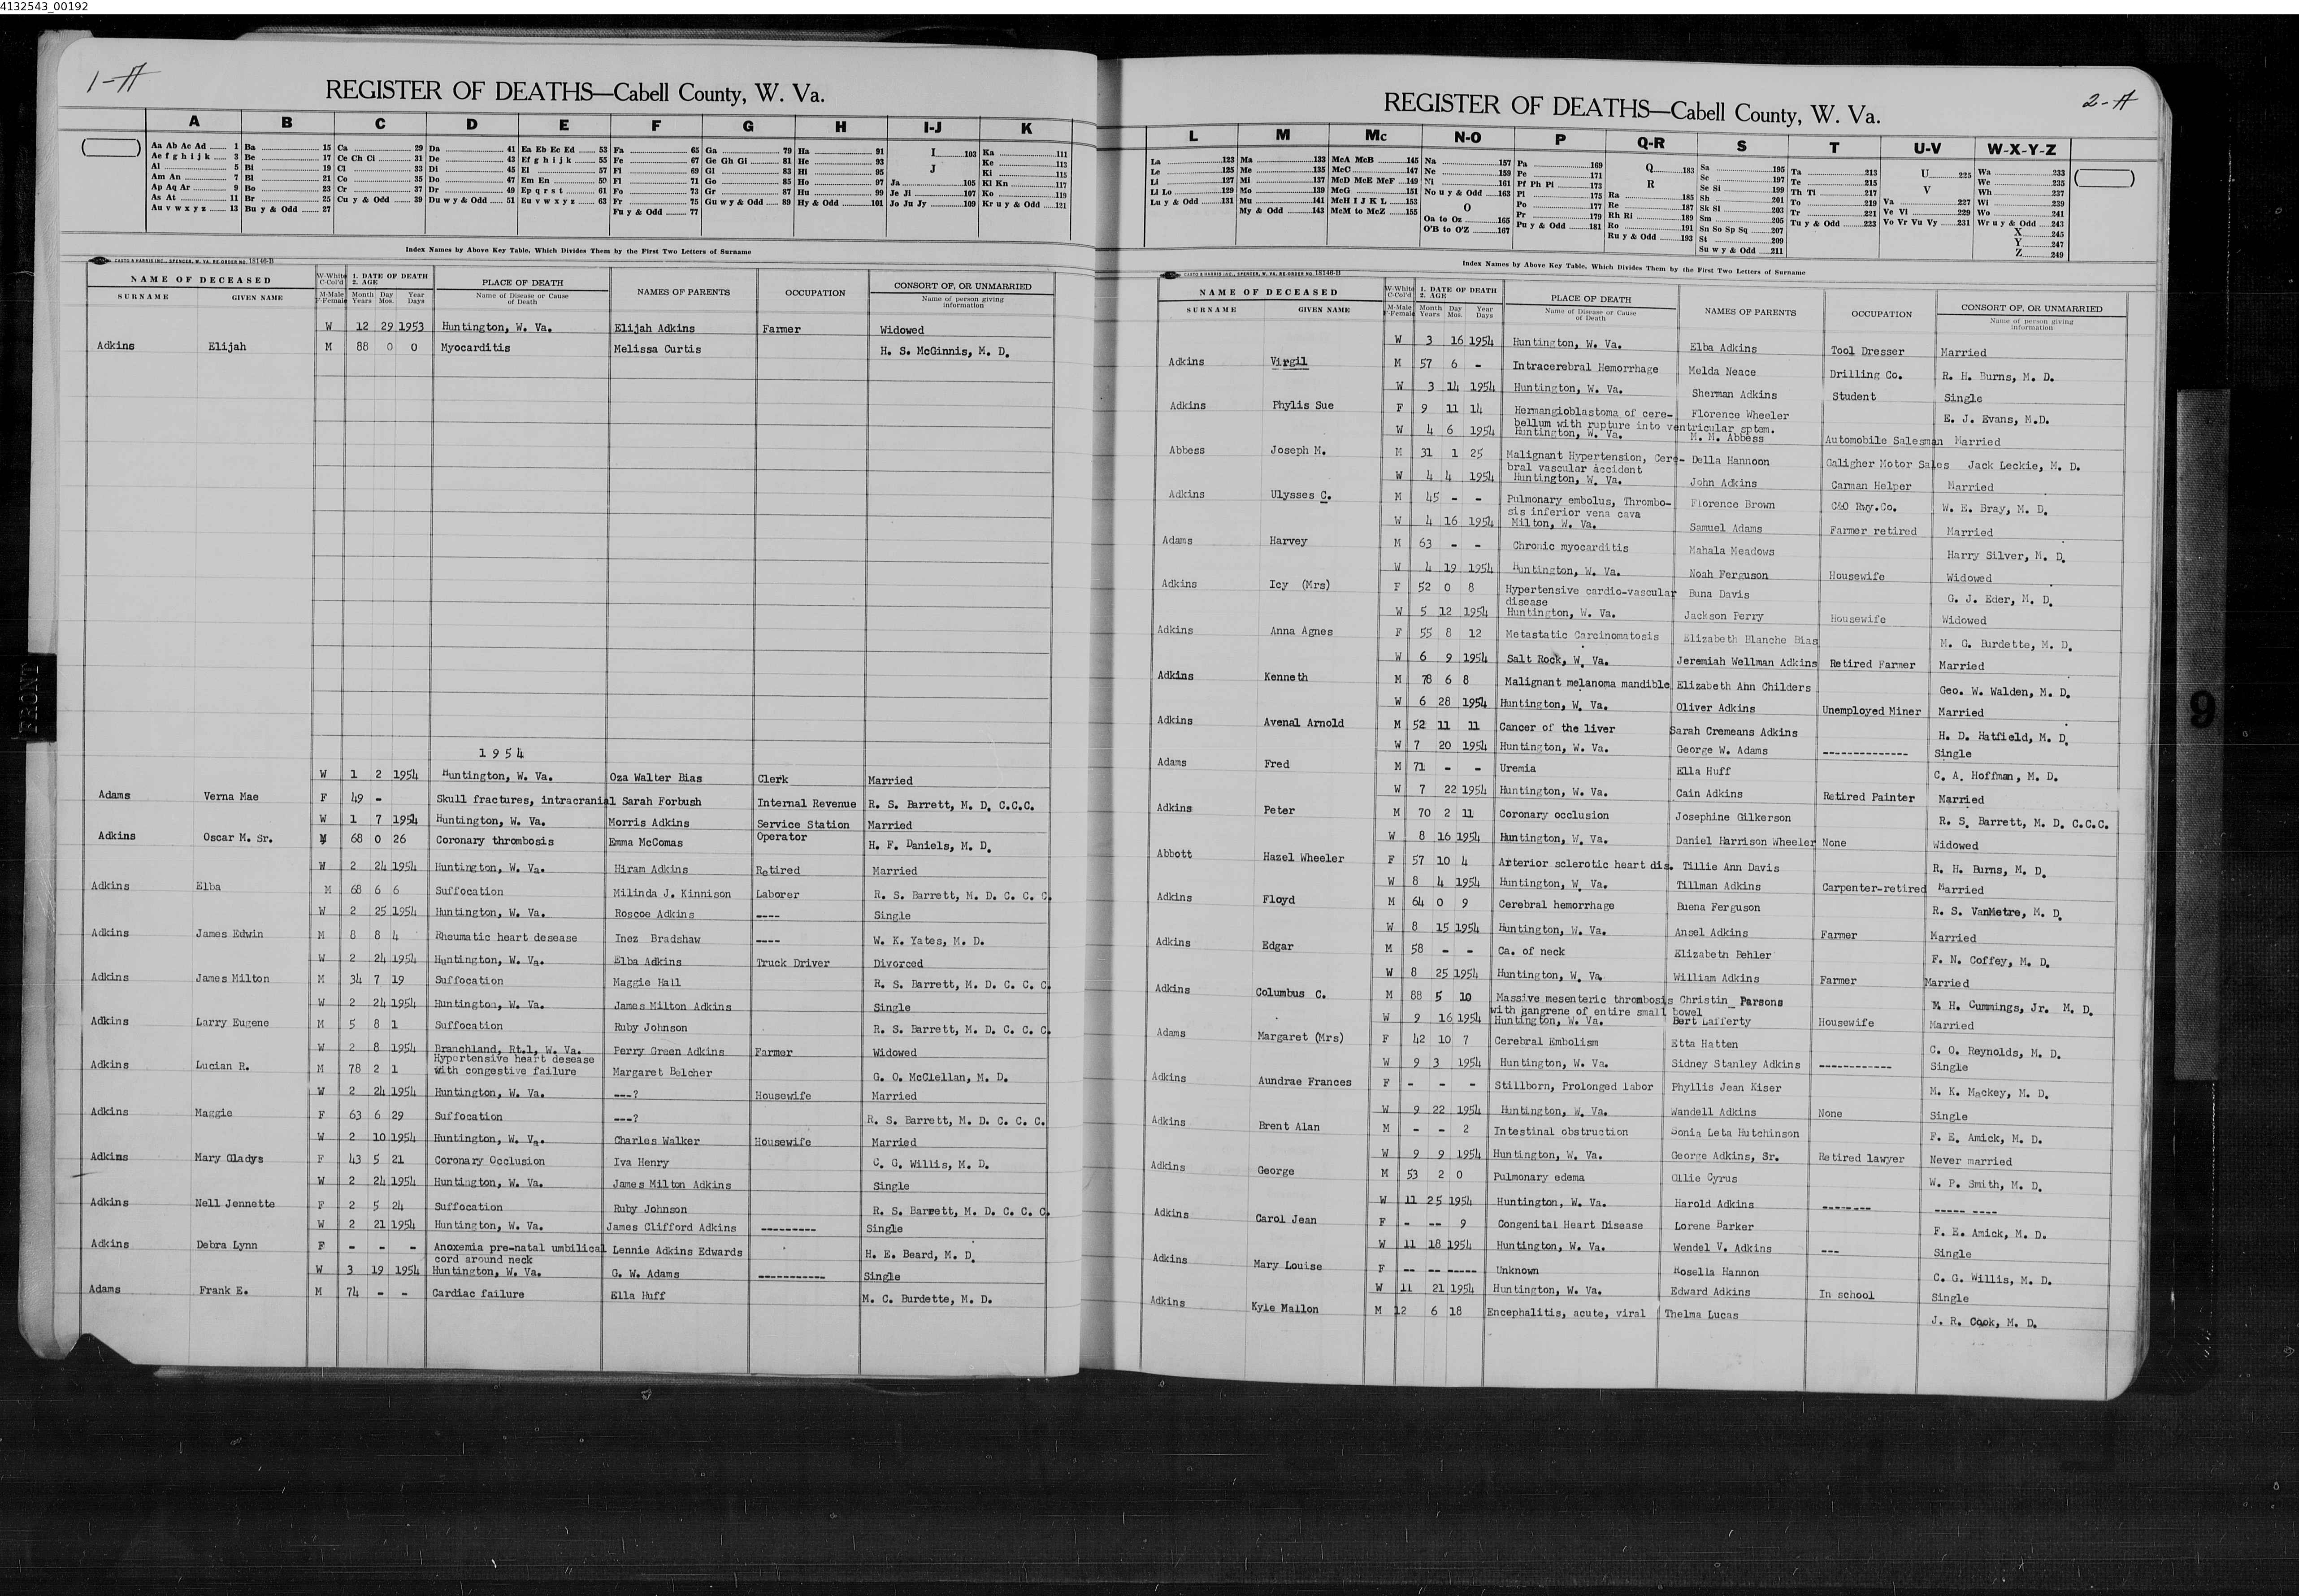 4132543_00192
1-A
REGISTER OF DEATHS—Cabell County, W. Va.
A B C D E F G H I-J K
Aa Ab Ac Ad 1 Ba 15 Ca 29 Da 41 Ea Eb Ec Ed 53 Fa 65 Ga 79 Ha 91 I 103 Ka 111
Ae f g h i j k 3 Be 17 Ce Ch Ci 31 De 43 Ef g h i j k 55 Fe 67 Ge Gh Gi 81 He 93 Ke 113
Al 5 Bi 19 Cl 33 Di 45 El 57 Fi 69 Gl 83 Hi 95 J Ki 115
Am An 7 Bl 21 Co 35 Do 47 Em En 59 Fl 71 Go 85 Ho 97 Ja 105 Kl Kn 117
Ap Aq Ar 9 Bo 23 Cr 37 Dr 49 Ep q r s t 61 Fo 73 Gr 87 Hu 99 Je Ji 107 Ko 119
As At 11 Br 25 Cu y & Odd 39 Du w y & Odd 51 Eu v w x y z 63 Fr 75 Gu w y & Odd 89 Hy & Odd 101 Jo Ju Jy 109 Kr u y & Odd 121
Au v w x y z 13 Bu y & Odd 27 Fu y & Odd 77
Index Names by Above Key Table, Which Divides Them by the First Two Letters of Surname
CASTO & HARRIS INC., SPENCER, W. VA. RE-ORDER NO. 18146-B
NAME OF DECEASED W-White C-Col'd 1. DATE OF DEATH 2. AGE PLACE OF DEATH NAMES OF PARENTS OCCUPATION CONSORT OF, OR UNMARRIED
SURNAME GIVEN NAME M-Male F-Female Month Years Day Mos. Year Days Name of Disease or Cause of Death Name of person giving information
W 12 29 1953 Huntington, W. Va. Elijah Adkins Farmer Widowed
Adkins Elijah M 88 0 0 Myocarditis Melissa Curtis H. S. McGinnis, M. D.
1954
W 1 2 1954 Huntington, W. Va. Oza Walter Bias Clerk Married
Adams Verna Mae F 49 - Skull fractures, intracranial Sarah Forbush Internal Revenue R. S. Barrett, M. D. C.C.C.
W 1 7 1954 Huntington, W. Va. Morris Adkins Service Station Married
Adkins Oscar M. Sr. M 68 0 26 Coronary thrombosis Emma McComas Operator H. F. Daniels, M. D.
W 2 24 1954 Huntington, W. Va. Hiram Adkins Retired Married
Adkins Elba M 68 6 6 Suffocation Milinda J. Kinnison Laborer R. S. Barrett, M. D. C. C. C.
W 2 25 1954 Huntington, W. Va. Roscoe Adkins ---- Single
Adkins James Edwin M 8 8 4 Rheumatic heart desease Inez Bradshaw ---- W. K. Yates, M. D.
W 2 24 1954 Huntington, W. Va. Elba Adkins Truck Driver Divorced
Adkins James Milton M 34 7 19 Suffocation Maggie Hall R. S. Barrett, M. D. C. C. C.
W 2 24 1954 Huntington, W. Va. James Milton Adkins Single
Adkins Larry Eugene M 5 8 1 Suffocation Ruby Johnson R. S. Barrett, M. D. C. C. C.
W 2 8 1954 Branchland, Rt.1, W. Va. Perry Green Adkins Farmer Widowed
Hypertensive heart desease
Adkins Lucian R. M 78 2 1 with congestive failure Margaret Belcher G. O. McClellan, M. D.
W 2 24 1954 Huntington, W. Va. ---? Housewife Married
Adkins Maggie F 63 6 29 Suffocation ---? R. S. Barrett, M. D. C. C. C.
W 2 10 1954 Huntington, W. Va. Charles Walker Housewife Married
Adkins Mary Gladys F 43 5 21 Coronary Occlusion Iva Henry C. G. Willis, M. D.
W 2 24 1954 Huntington, W. Va. James Milton Adkins Single
Adkins Nell Jennette F 2 5 24 Suffocation Ruby Johnson R. S. Barrett, M. D. C. C. C.
W 2 21 1954 Huntington, W. Va. James Clifford Adkins --------- Single
Adkins Debra Lynn F - - - Anoxemia pre-natal umbilical Lennie Adkins Edwards H. E. Beard, M. D.
cord around neck
W 3 19 1954 Huntington, W. Va. G. W. Adams ----------- Single
Adams Frank E. M 74 - - Cardiac failure Ella Huff M. C. Burdette, M. D.
2-A
REGISTER OF DEATHS—Cabell County, W. Va.
L M Mc N-O P Q-R S T U-V W-X-Y-Z
La 123 Ma 133 McA McB 145 Na 157 Pa 169 Q 183 Sa 195 Ta 213 U 225 Wa 233
Le 125 Me 135 McC 147 Ne 159 Pe 171 Sc 197 Te 215 We 235
Li 127 Mi 137 McD McE McF 149 Ni 161 Pf Ph Pi 173 R Se Si 199 Th Ti 217 V Wh 237
Ll Lo 129 Mo 139 McG 151 No u y & Odd 163 Pl 175 Ra 185 Sh 201 To 219 Va 227 Wi 239
Lu y & Odd 131 Mu 141 McH I J K L 153 O Po 177 Re 187 Sk Sl 203 Tr 221 Ve Vi 229 Wo 241
My & Odd 143 McM to McZ 155 Oa to Oz 165 Pr 179 Rh Ri 189 Sm 205 Tu y & Odd 223 Vo Vr Vu Vy 231 Wr u y & Odd 243
O'B to O'Z 167 Pu y & Odd 181 Ro 191 Sn So Sp Sq 207 X 245
Ru y & Odd 193 St 209 Y 247
Su w y & Odd 211 Z 249
Index Names by Above Key Table, Which Divides Them by the First Two Letters of Surname
CASTO & HARRIS INC., SPENCER, W. VA. RE-ORDER NO. 18146-B
NAME OF DECEASED W-White C-Col'd 1. DATE OF DEATH 2. AGE PLACE OF DEATH NAMES OF PARENTS OCCUPATION CONSORT OF, OR UNMARRIED
SURNAME GIVEN NAME M-Male F-Female Month Years Day Mos. Year Days Name of Disease or Cause of Death Name of person giving information
W 3 16 1954 Huntington, W. Va. Elba Adkins Tool Dresser Married
Adkins Virgil M 57 6 - Intracerebral Hemorrhage Melda Neace Drilling Co. R. H. Burns, M. D.
W 3 14 1954 Huntington, W. Va. Sherman Adkins Student Single
Adkins Phylis Sue F 9 11 14 Hermangioblastoma of cere- Florence Wheeler E. J. Evans, M.D.
bellum with rupture into ventricular sptem.
W 4 6 1954 Huntington, W. Va. M. M. Abbess Automobile Salesman Married
Abbess Joseph M. M 31 1 25 Malignant Hypertension, Cere- Della Hannoon Galigher Motor Sales Jack Leckie, M. D.
bral vascular accident
W 4 4 1954 Huntington, W. Va. John Adkins Carman Helper Married
Adkins Ulysses C. M 45 - - Pulmonary embolus, Thrombo- Florence Brown C&O Rwy.Co. W. E. Bray, M. D.
sis inferior vena cava
W 4 16 1954 Milton, W. Va. Samuel Adams Farmer retired Married
Adams Harvey M 63 - - Chronic myocarditis Mahala Meadows Harry Silver, M. D.
W 4 19 1954 Huntington, W. Va. Noah Ferguson Housewife Widowed
Adkins Icy (Mrs) F 52 0 8 Hypertensive cardio-vascular Buna Davis G. J. Eder, M. D.
disease
W 5 12 1954 Huntington, W. Va. Jackson Perry Housewife Widowed
Adkins Anna Agnes F 55 8 12 Metastatic Carcinomatosis Elizabeth Blanche Bias M. G. Burdette, M. D.
W 6 9 1954 Salt Rock, W. Va. Jeremiah Wellman Adkins Retired Farmer Married
Adkins Kenneth M 78 6 8 Malignant melanoma mandible Elizabeth Ann Childers Geo. W. Walden, M. D.
W 6 28 1954 Huntington, W. Va. Oliver Adkins Unemployed Miner Married
Adkins Avenal Arnold M 52 11 11 Cancer of the liver Sarah Cremeans Adkins H. D. Hatfield, M. D.
W 7 20 1954 Huntington, W. Va. George W. Adams -------------- Single
Adams Fred M 71 - - Uremia Ella Huff C. A. Hoffman, M. D.
W 7 22 1954 Huntington, W. Va. Cain Adkins Retired Painter Married
Adkins Peter M 70 2 11 Coronary occlusion Josephine Gilkerson R. S. Barrett, M. D. C.C.C.
W 8 16 1954 Huntington, W. Va. Daniel Harrison Wheeler None Widowed
Abbott Hazel Wheeler F 57 10 4 Arterior sclerotic heart dis. Tillie Ann Davis R. H. Burns, M. D.
W 8 4 1954 Huntington, W. Va. Tillman Adkins Carpenter-retired Married
Adkins Floyd M 64 0 9 Cerebral hemorrhage Buena Ferguson R. S. VanMetre, M. D.
W 8 15 1954 Huntington, W. Va. Ansel Adkins Farmer Married
Adkins Edgar M 58 - - Ca. of neck Elizabeth Behler F. N. Coffey, M. D.
W 8 25 1954 Huntington, W. Va. William Adkins Farmer Married
Adkins Columbus C. M 88 5 10 Massive mesenteric thrombosis Christin_ Parsons M. H. Cummings, Jr. M. D.
with gangrene of entire small bowel
W 9 16 1954 Huntington, W. Va. Bert Lafferty Housewife Married
Adams Margaret (Mrs) F 42 10 7 Cerebral Embolism Etta Hatten C. O. Reynolds, M. D.
W 9 3 1954 Huntington, W. Va. Sidney Stanley Adkins ------------ Single
Adkins Aundrae Frances F - - - Stillborn, Prolonged labor Phyllis Jean Kiser M. K. Mackey, M. D.
W 9 22 1954 Huntington, W. Va. Wandell Adkins None Single
Adkins Brent Alan M - - 2 Intestinal obstruction Sonia Leta Hutchinson F. E. Amick, M. D.
W 9 9 1954 Huntington, W. Va. George Adkins, Sr. Retired lawyer Never married
Adkins George M 53 2 0 Pulmonary edema Ollie Cyrus W. P. Smith, M. D.
W 11 25 1954 Huntington, W. Va. Harold Adkins -------- ----- ----
Adkins Carol Jean F - -- 9 Congenital Heart Disease Lorene Barker F. E. Amick, M. D.
W 11 18 1954 Huntington, W. Va. Wendel V. Adkins --- Single
Adkins Mary Louise F -- -- ----- Unknown Rosella Hannon C. G. Willis, M. D.
W 11 21 1954 Huntington, W. Va. Edward Adkins In school Single
Adkins Kyle Mallon M 12 6 18 Encephalitis, acute, viral Thelma Lucas J. R. Cook, M. D.
FRONT
9